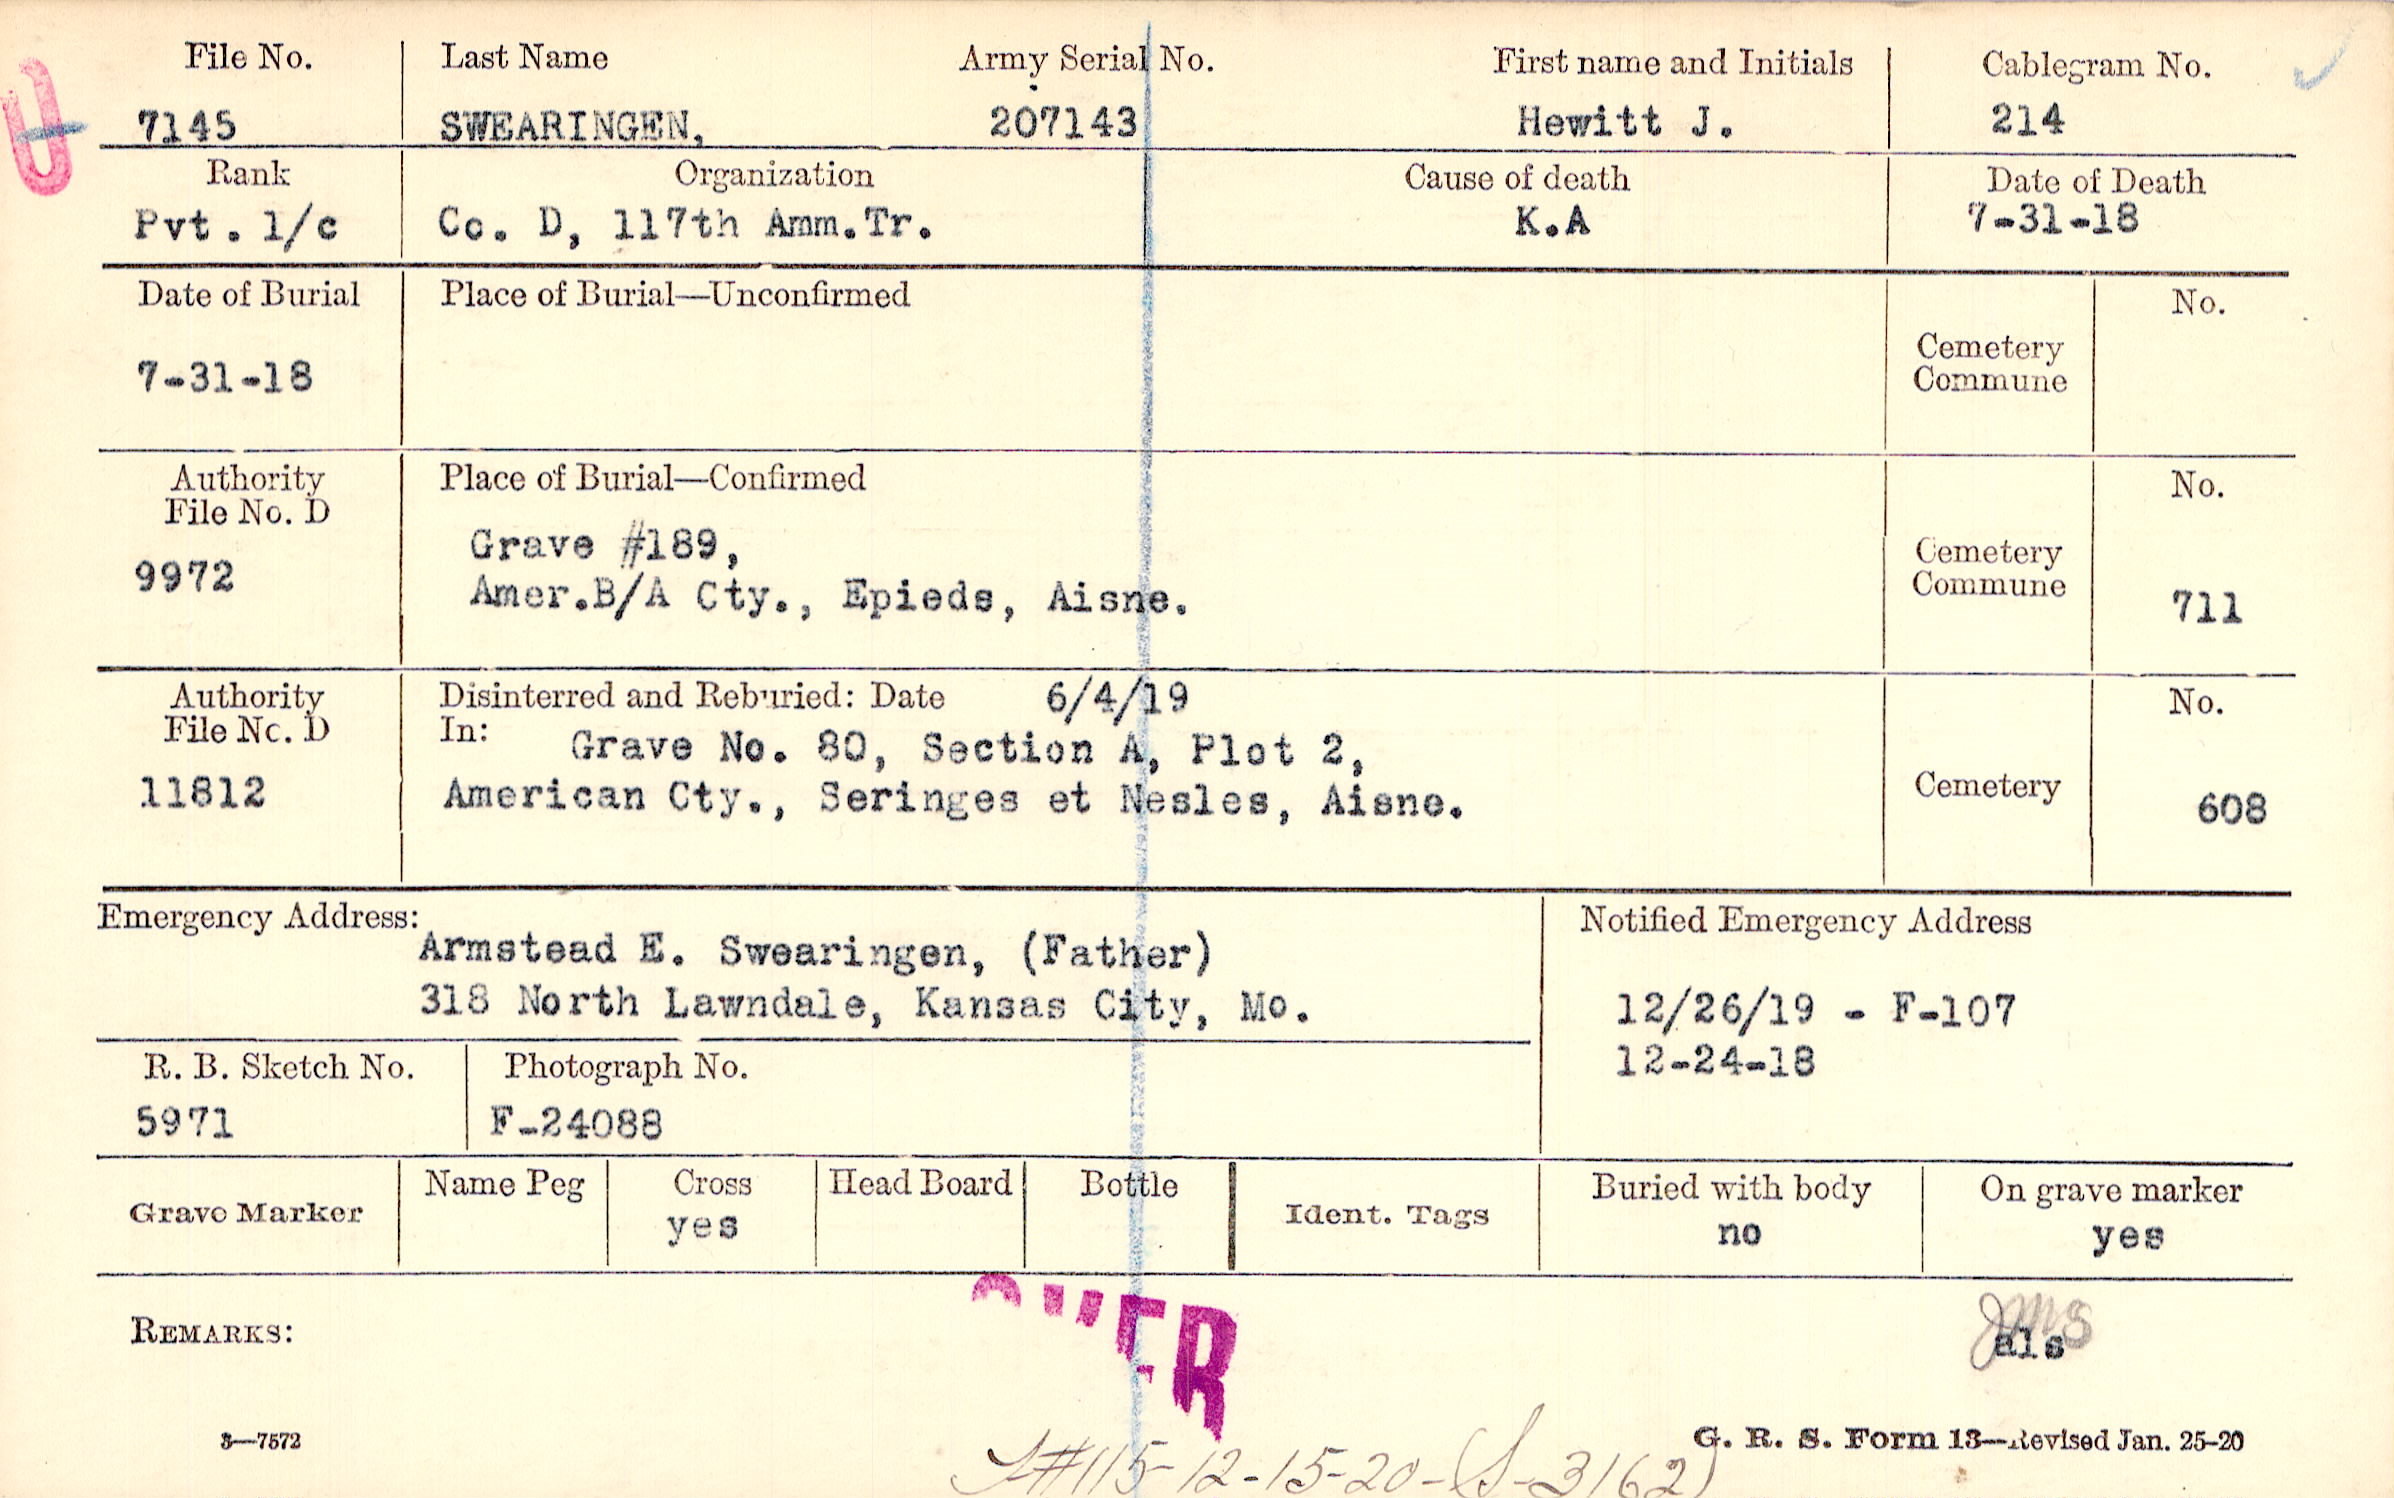 File No. Last Name Army Serial No. First name and Initials Cablegram No.
7145 SWEARINGEN, 207143 Hewitt J. 214
Rank Organization Cause of death Date of Death
Pvt. 1/c Co. D, 117th Amm.Tr. K.A 7-31-18
Date of Burial Place of Burial—Unconfirmed No.
Cemetery
Commune
7-31-18
Authority Place of Burial—Confirmed No.
File No. D
Grave #189,
Cemetery
Commune
9972 Amer.B/A Cty., Epieds, Aisne. 711
Authority Disinterred and Reburied: Date 6/4/19 No.
File No. D In: Grave No. 80, Section A, Plot 2,
11812 American Cty., Seringes et Nesles, Aisne. Cemetery 608
Emergency Address: Notified Emergency Address
Armstead E. Swearingen, (Father)
318 North Lawndale, Kansas City, Mo. 12/26/19 - F-107
R. B. Sketch No. Photograph No. 12-24-18
5971 F-24088
Grave Marker Name Peg Cross Head Board Bottle Ident. Tags Buried with body On grave marker
yes no yes
OVER
REMARKS: JMS
als
3—7572 G. R. S. Form 13—Revised Jan. 25-20
#115-12-15-20-(S-3162)